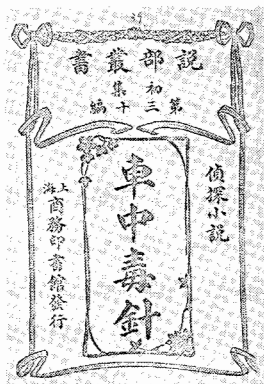 說部叢書
初集
第三十編
偵探小說
車中毒針
上海商務印書館發行